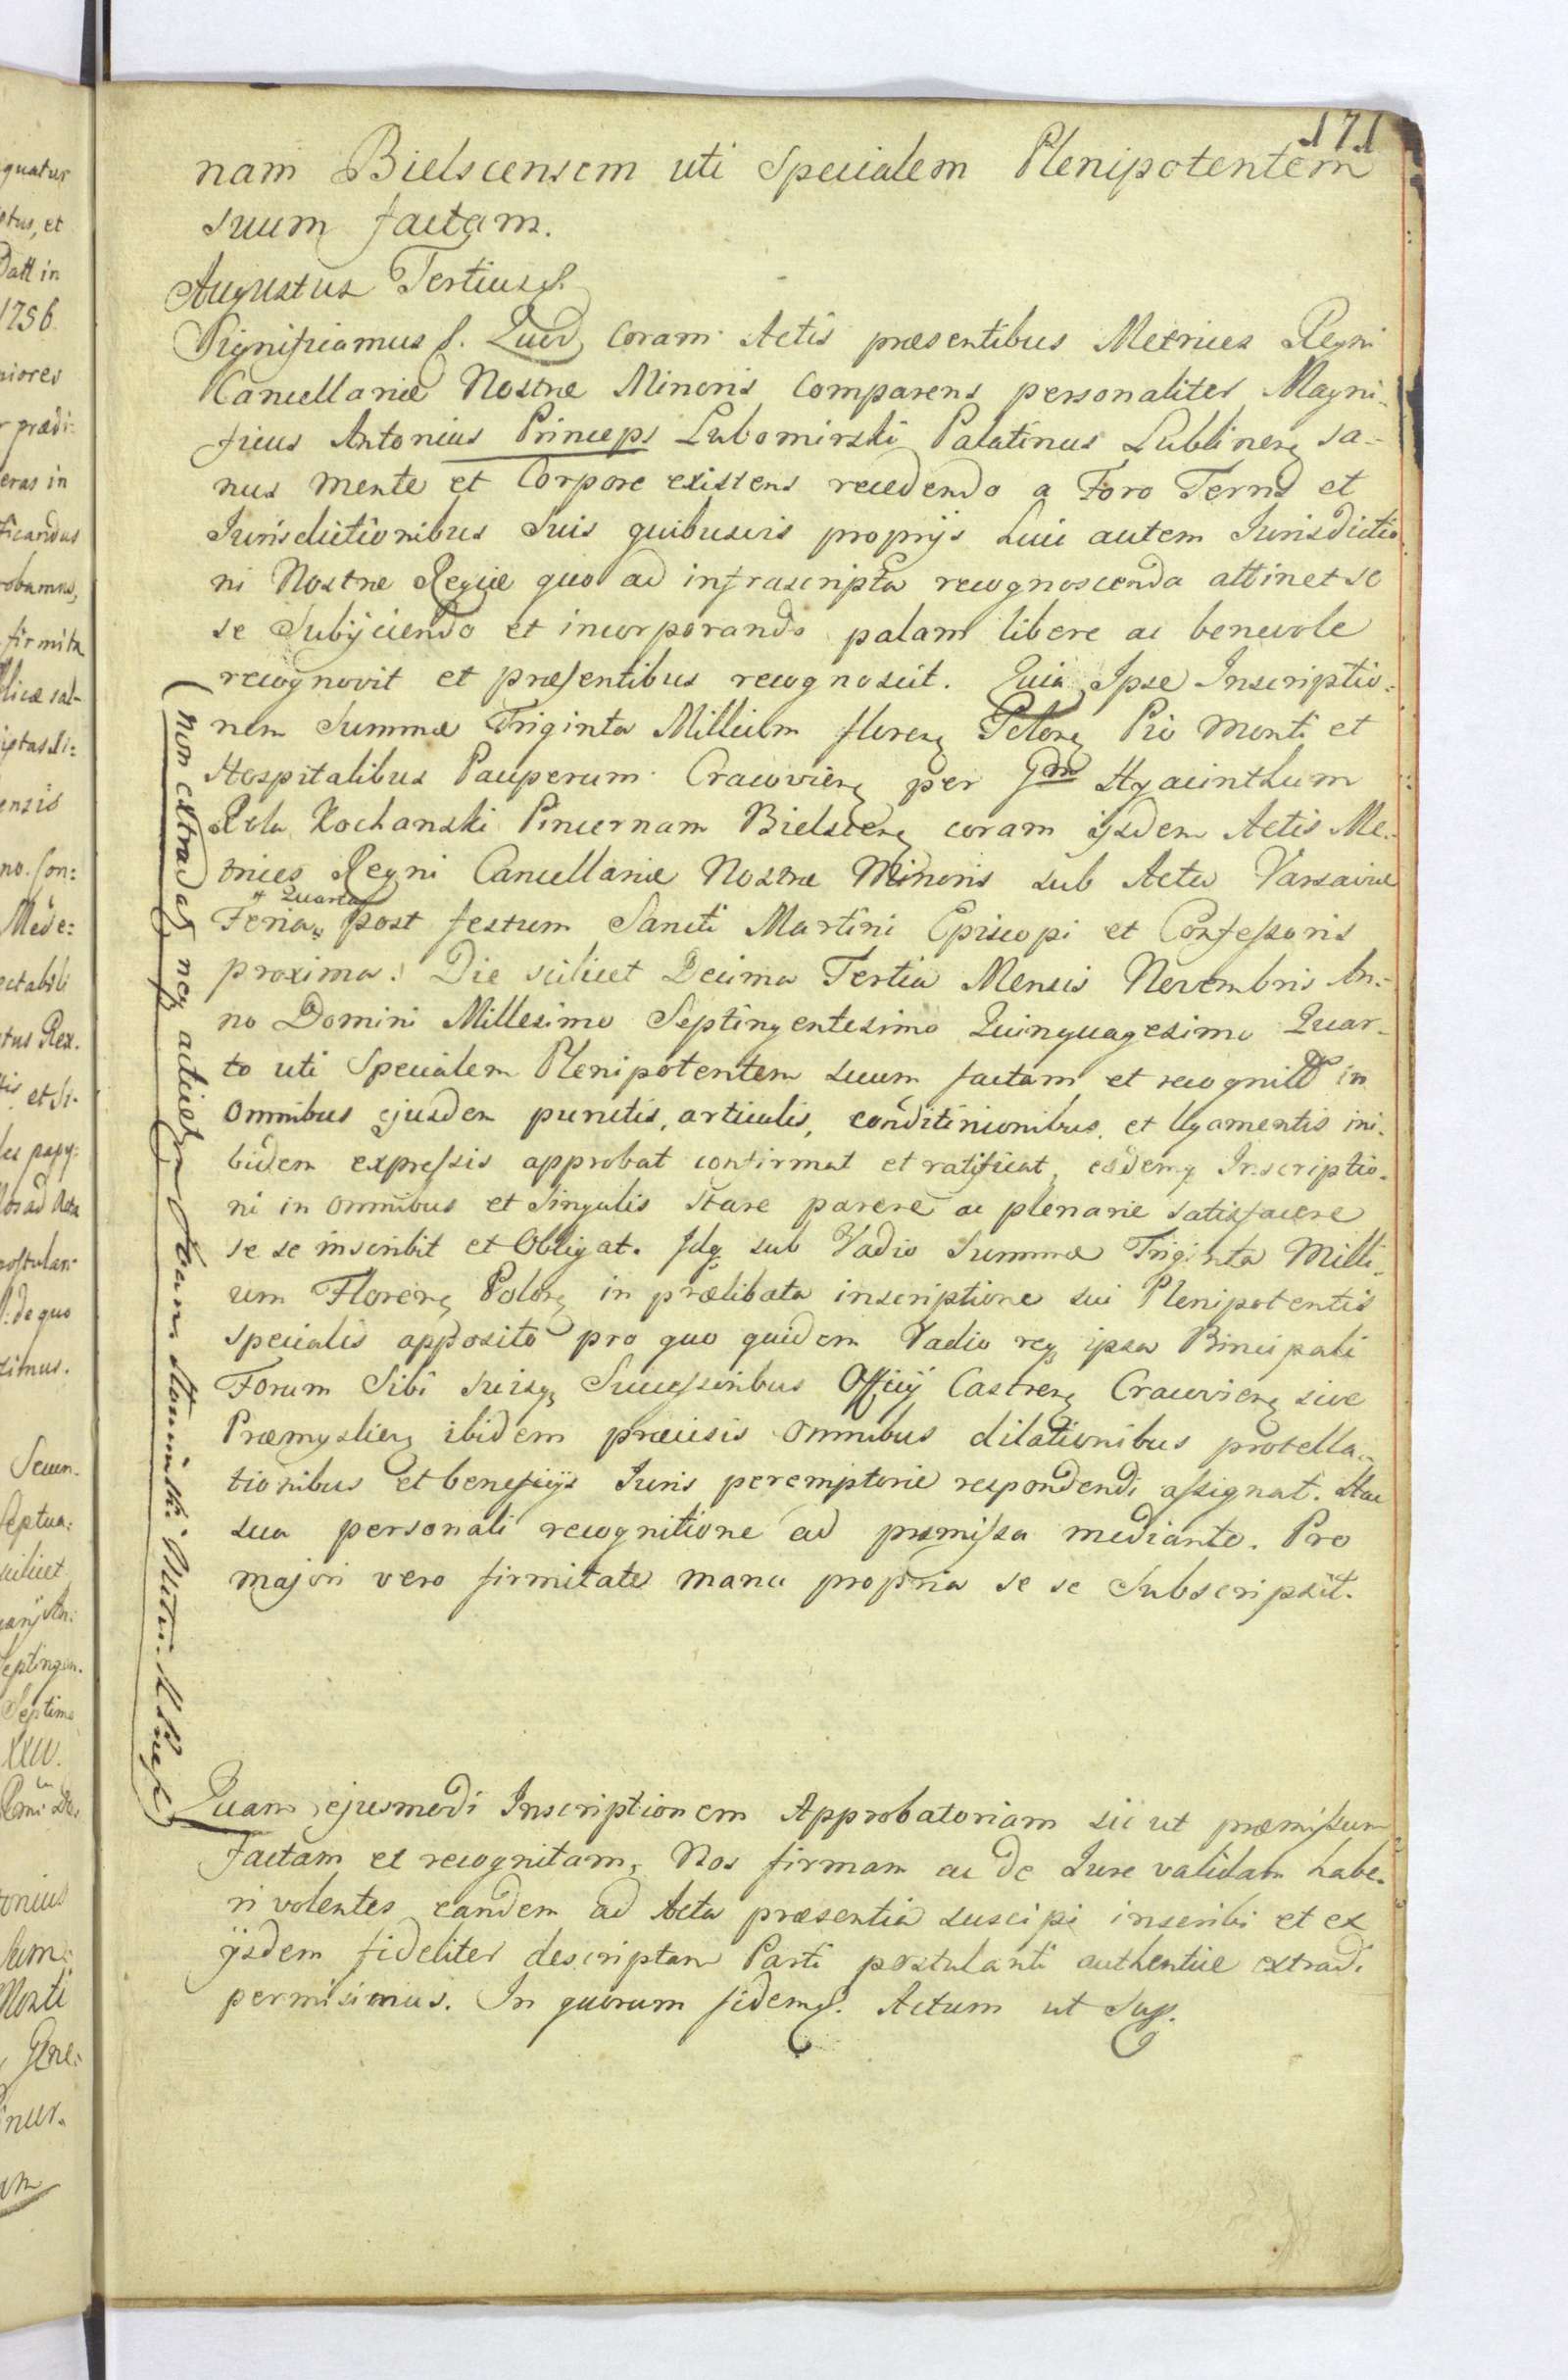 171
nam Bielscensem uti Specialem Plenipotentem
suum factam.
Augustus Tertius
Significamus Quod coram Actis præsentibus Metrices Regni
Cancellariæ Nostræ Minoris comparens personaliter Magni-
ficus Antonius Princeps Lubomirski Palatinus Lublinen sa-
nus mente et Corpore existens recedendo a Foro Terris et
Jurisdictionibus Suis quibusvis proprijs huic autem Jurisdictio
ni Nostræ Regiæ quo ad infrascripta recognoscenda attinet se
se Subijciendo et incorporando palam libere ac benevole
recognovit et præsentibus recognoscit. Quia Ipse Inscriptio-
nem Summæ Triginta Millium floren Polon Pio Monti et
Hospitalibus Pauperum Cracovien per Gdm Hyacinthum
Rola Kochanski Pincernam Bielscen coram ijsdem Actis Me-
trices Regni Cancellariæ Nostræ Minoris sub Acta Varsaviæ
Quarta
Feria post festum Sancti Martini Episcopi et Confessoris
proxima. Die scilicet Decima Tertia Mensis Novembris An-
no Domini Millesimo Septingentesimo Quinquagesimo Quar-
to uti Specialem Plenipotentem suum factam et recognit in
omnibus ejusdem punctis, articulis, conditinionibus, et ligamentis ini-
bidem expressis approbat confirmat et ratificat, eidemq Inscriptio-
ni in omnibus et Singulis Stare parere ac plenarie satisfacere
se se inscribit et Obligat. Idq sub Vadio Summæ Triginta Milli-
um Floren Polon in prælibata inscriptione sui Plenipotentis
specialis apposito pro quo quidem Vadio req ipsa Principali
Forum Sibi suisq Successoribus Officij Castren Cracovien sive
Præmyslien ibidem præcisis omnibus dilationibus protella-
tionibus et beneficijs Juris peremptorie respondendi assignat. Hac
sua personali recognitione ad præmissa mediante. Pro
majori vero firmitate manu propria se se Subscripsit.
Quam ejusmodi Inscriptionem Approbatoriam sic ut præmissum
factam et recognitam, Nos firmam ac de Jure validam habe-
ri volentes eandem ad Acta præsentia suscipi inscribi et ex
ijsdem fideliter descriptam Parti postulanti authentice extradi
permisimus. In quorum fidem. Actum ut Sup.